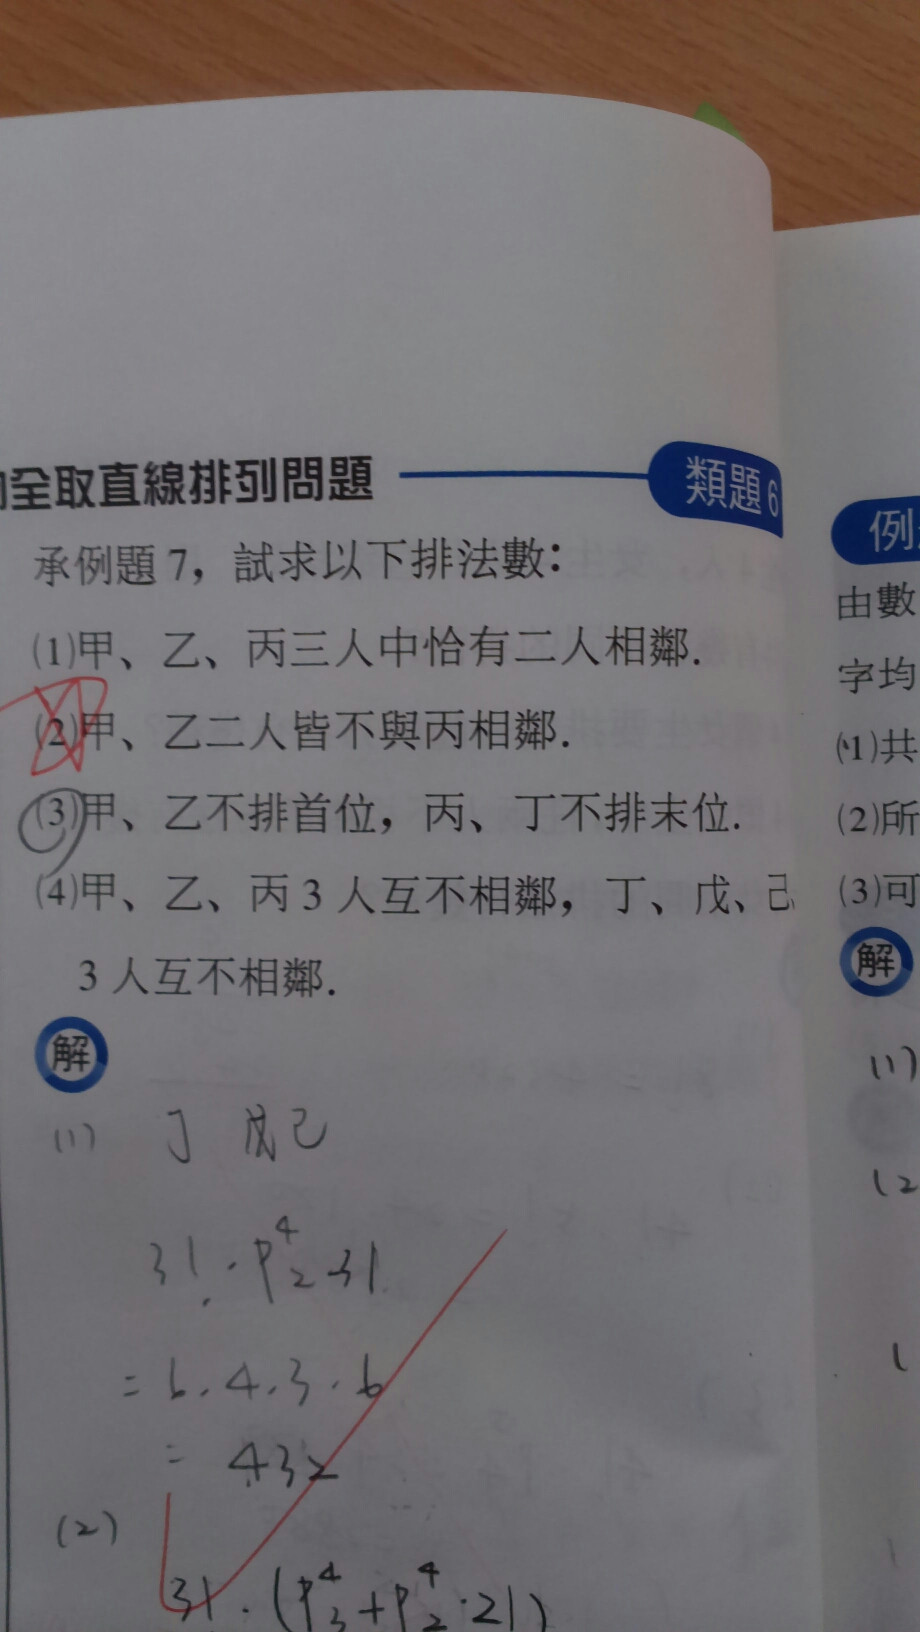 全取直線排列問題
類題 6
承例題 7，試求以下排法數：
(1)甲、乙、丙三人中恰有二人相鄰.
(2)甲、乙二人皆不與丙相鄰.
(3)甲、乙不排首位，丙、丁不排末位.
(4)甲、乙、丙 3 人互不相鄰，丁、戊、己
3 人互不相鄰.
解
(1) 丁 戊己
3!·P⁴₂·3!
=6.4.3.6
= 432
(2)
3!·(P⁴₃+P⁴₂·2!)
例
由數
字均
(1)共
(2)所
(3)可
解
(1)
(2